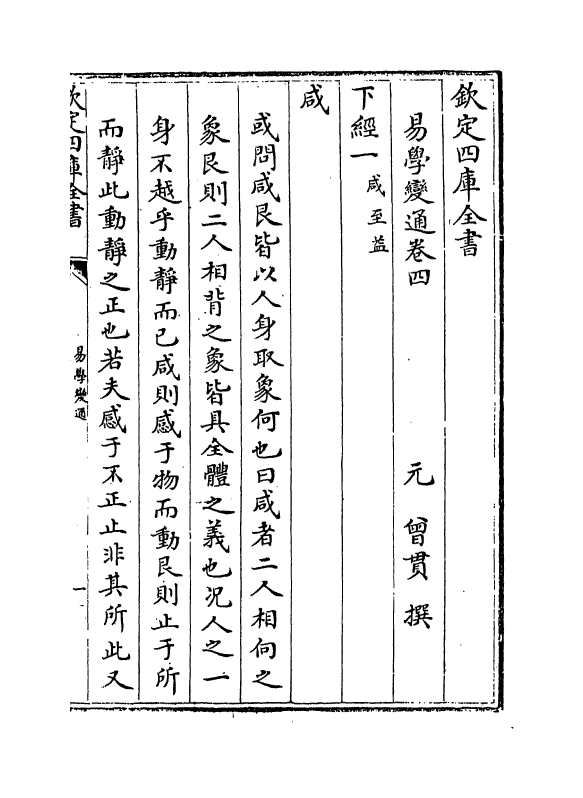 欽定四庫全書
易學變通卷四
元 曾貫 撰
下經一 咸至益
咸
或問咸艮皆以人身取象何也曰咸者二人相向之
象艮則二人相背之象皆具全體之義也况人之一
身不越乎動靜而已咸則感于物而動艮則止于所
而靜此動靜之正也若夫感于不正止非其所此又
欽定四庫全書
易學變通
一